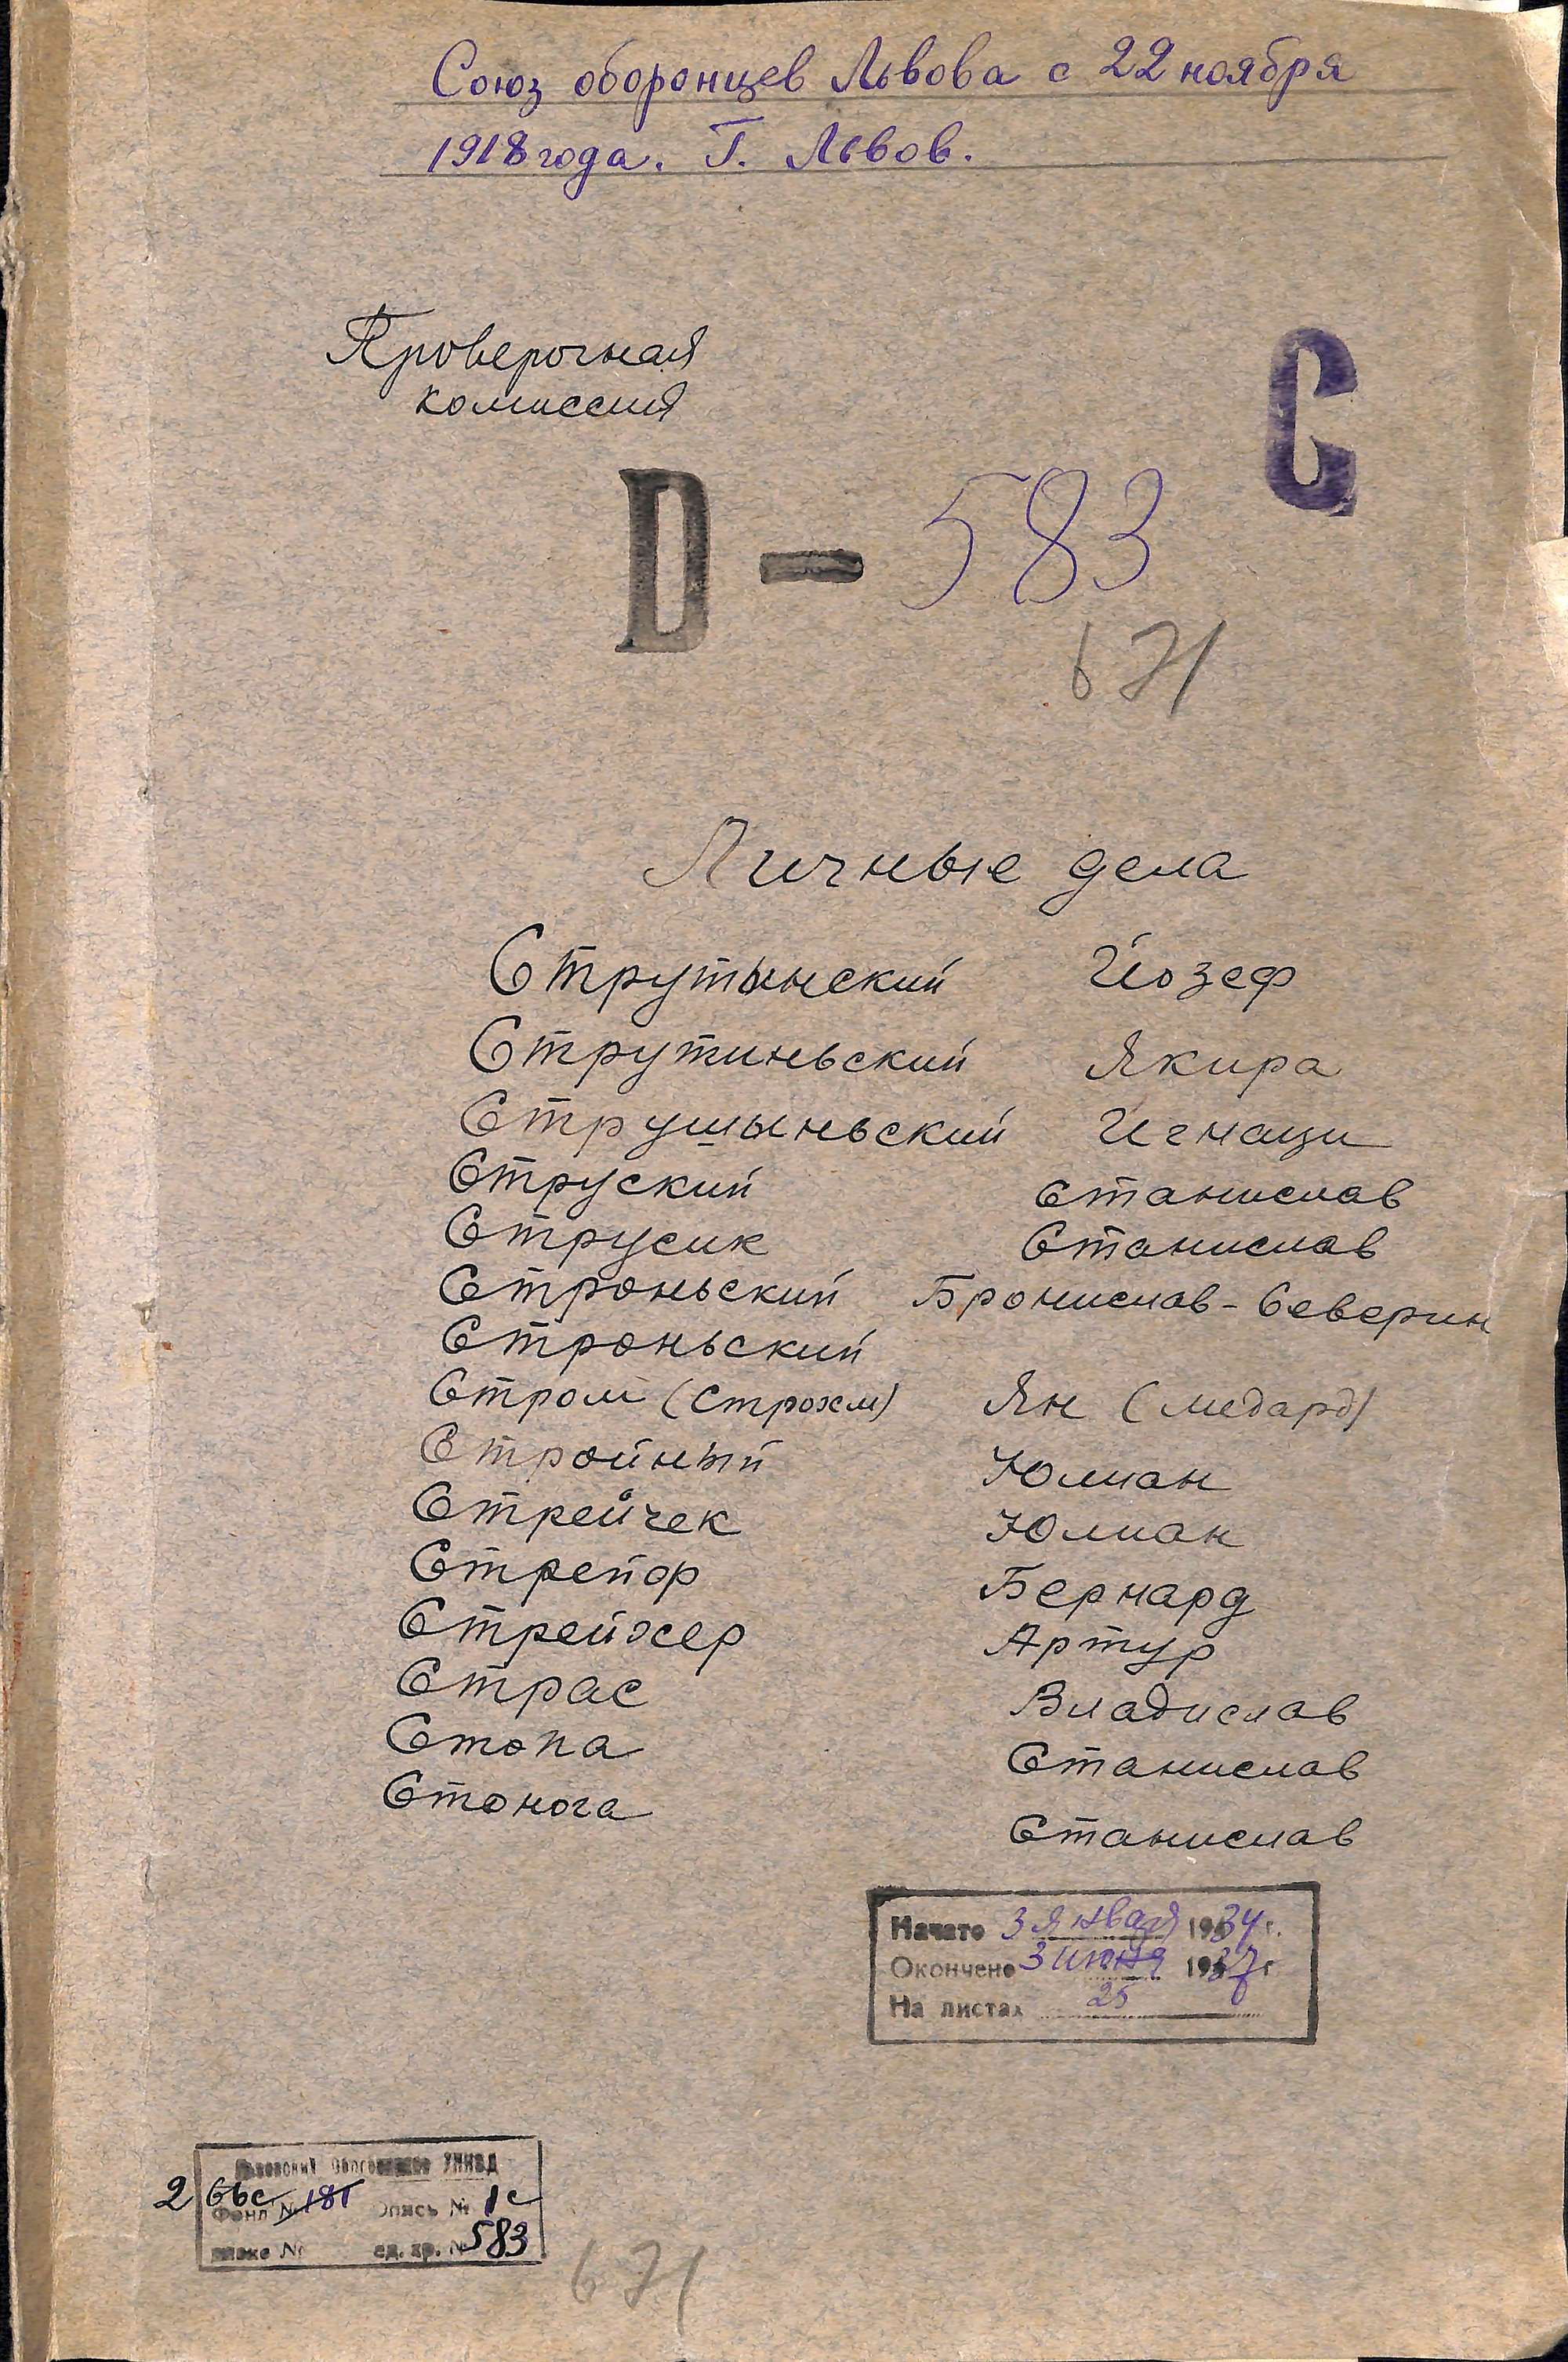 Союз оборонцев Львова с 22 ноября
1918 года. Г. Львов.
Проверочная
комиссия
С
D — 583
671
Личные дела
Струтынский Йозеф
Струтиньский Якира
Струшыньский Игнаци
Струский Станислав
Струсик Станислав
Строньский Бронислав-Северин
Строньский
Стром (Строхм) Ян (Медард)
Стройный Юлиан
Стрейчек Юлиан
Бернард
Артур
Страс Владислав
Стопа Станислав
Стонога Станислав
Начато 3 января 1934 г.
Окончено 3 июня 1937 г
На листах 25
УНКВД
2 66с
Фонд № 181 Опись № 1с
ед. хр. № 583
671